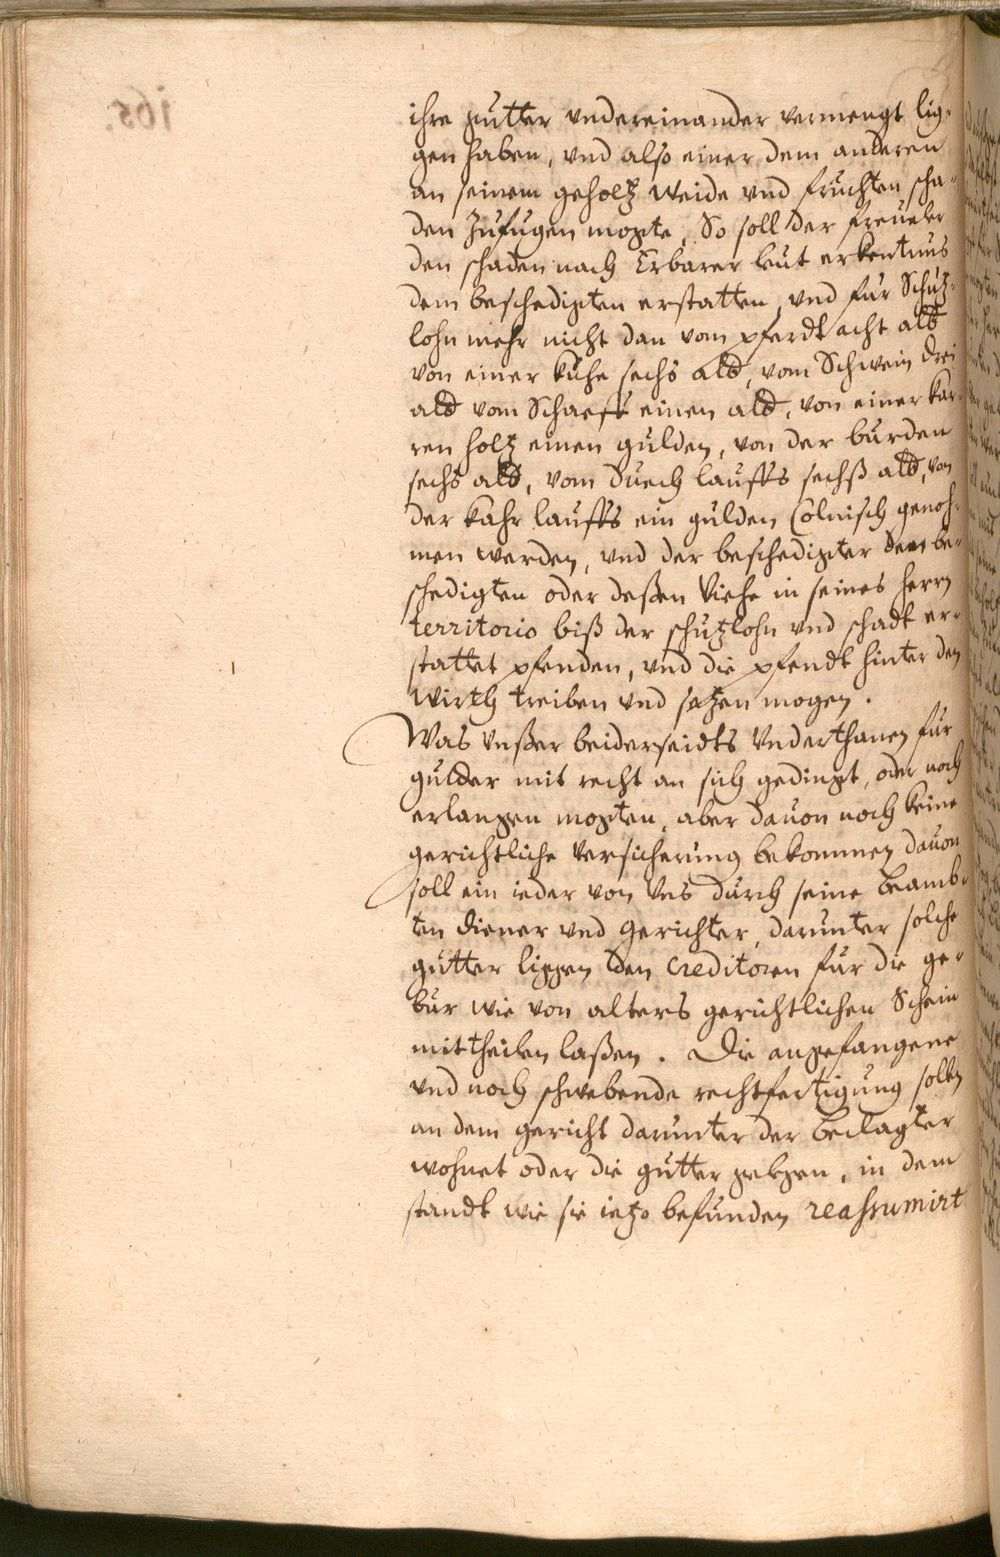 ihre gütter vndereinander vermengt lig-
gen haben, vnd also einer dem anderen
an seinem geholtz weide vnd früchten scha-
den zufügen mogte, So soll der freueler
den schaden nach Erbarer leut erkentnus
dem beschedigten erstatten, vnd für Schütz-
lohn mehr nicht dan vom pferdt acht alb
von einer kühe sechs alb, vom Schwein drei
alb vom Schaeff einen alb, von einer kar-
ren holtz einen gulden, von der bürden
sechs alb, vom duech lauffs sechß alb, von
der kahr lauffs ein gulden Colnisch genoh-
men werden, vnd der beschedigter den be-
schedigten oder deßen Viehe in seines herrn
territorio biß der schützlohn vnd schadt er-
stattet pfenden, vnd die pfendt hinter den
wirth treiben vnd setzen mogen.
Was vnßer beiderseidts Vnderthanen für
gulder mit recht an sich gedingt, oder noch
erlangen mogten, aber dauon noch keine
gerichtliche versicherung bekommen dauon
soll ein ieder von Vns durch seine beamb-
ten diener vnd gerichter, darunter solche
gütter liggen den Creditoren für die ge-
bür wie von alters gerichtlichen Schein
mittheilen laßen. Die angefangene
vnd noch schwebende rechtfertigung sollen
an dem gericht darunter der beclagter
wohnet oder die gütter gelegen, in dem
standt wie sie ietzo befunden reassumirt